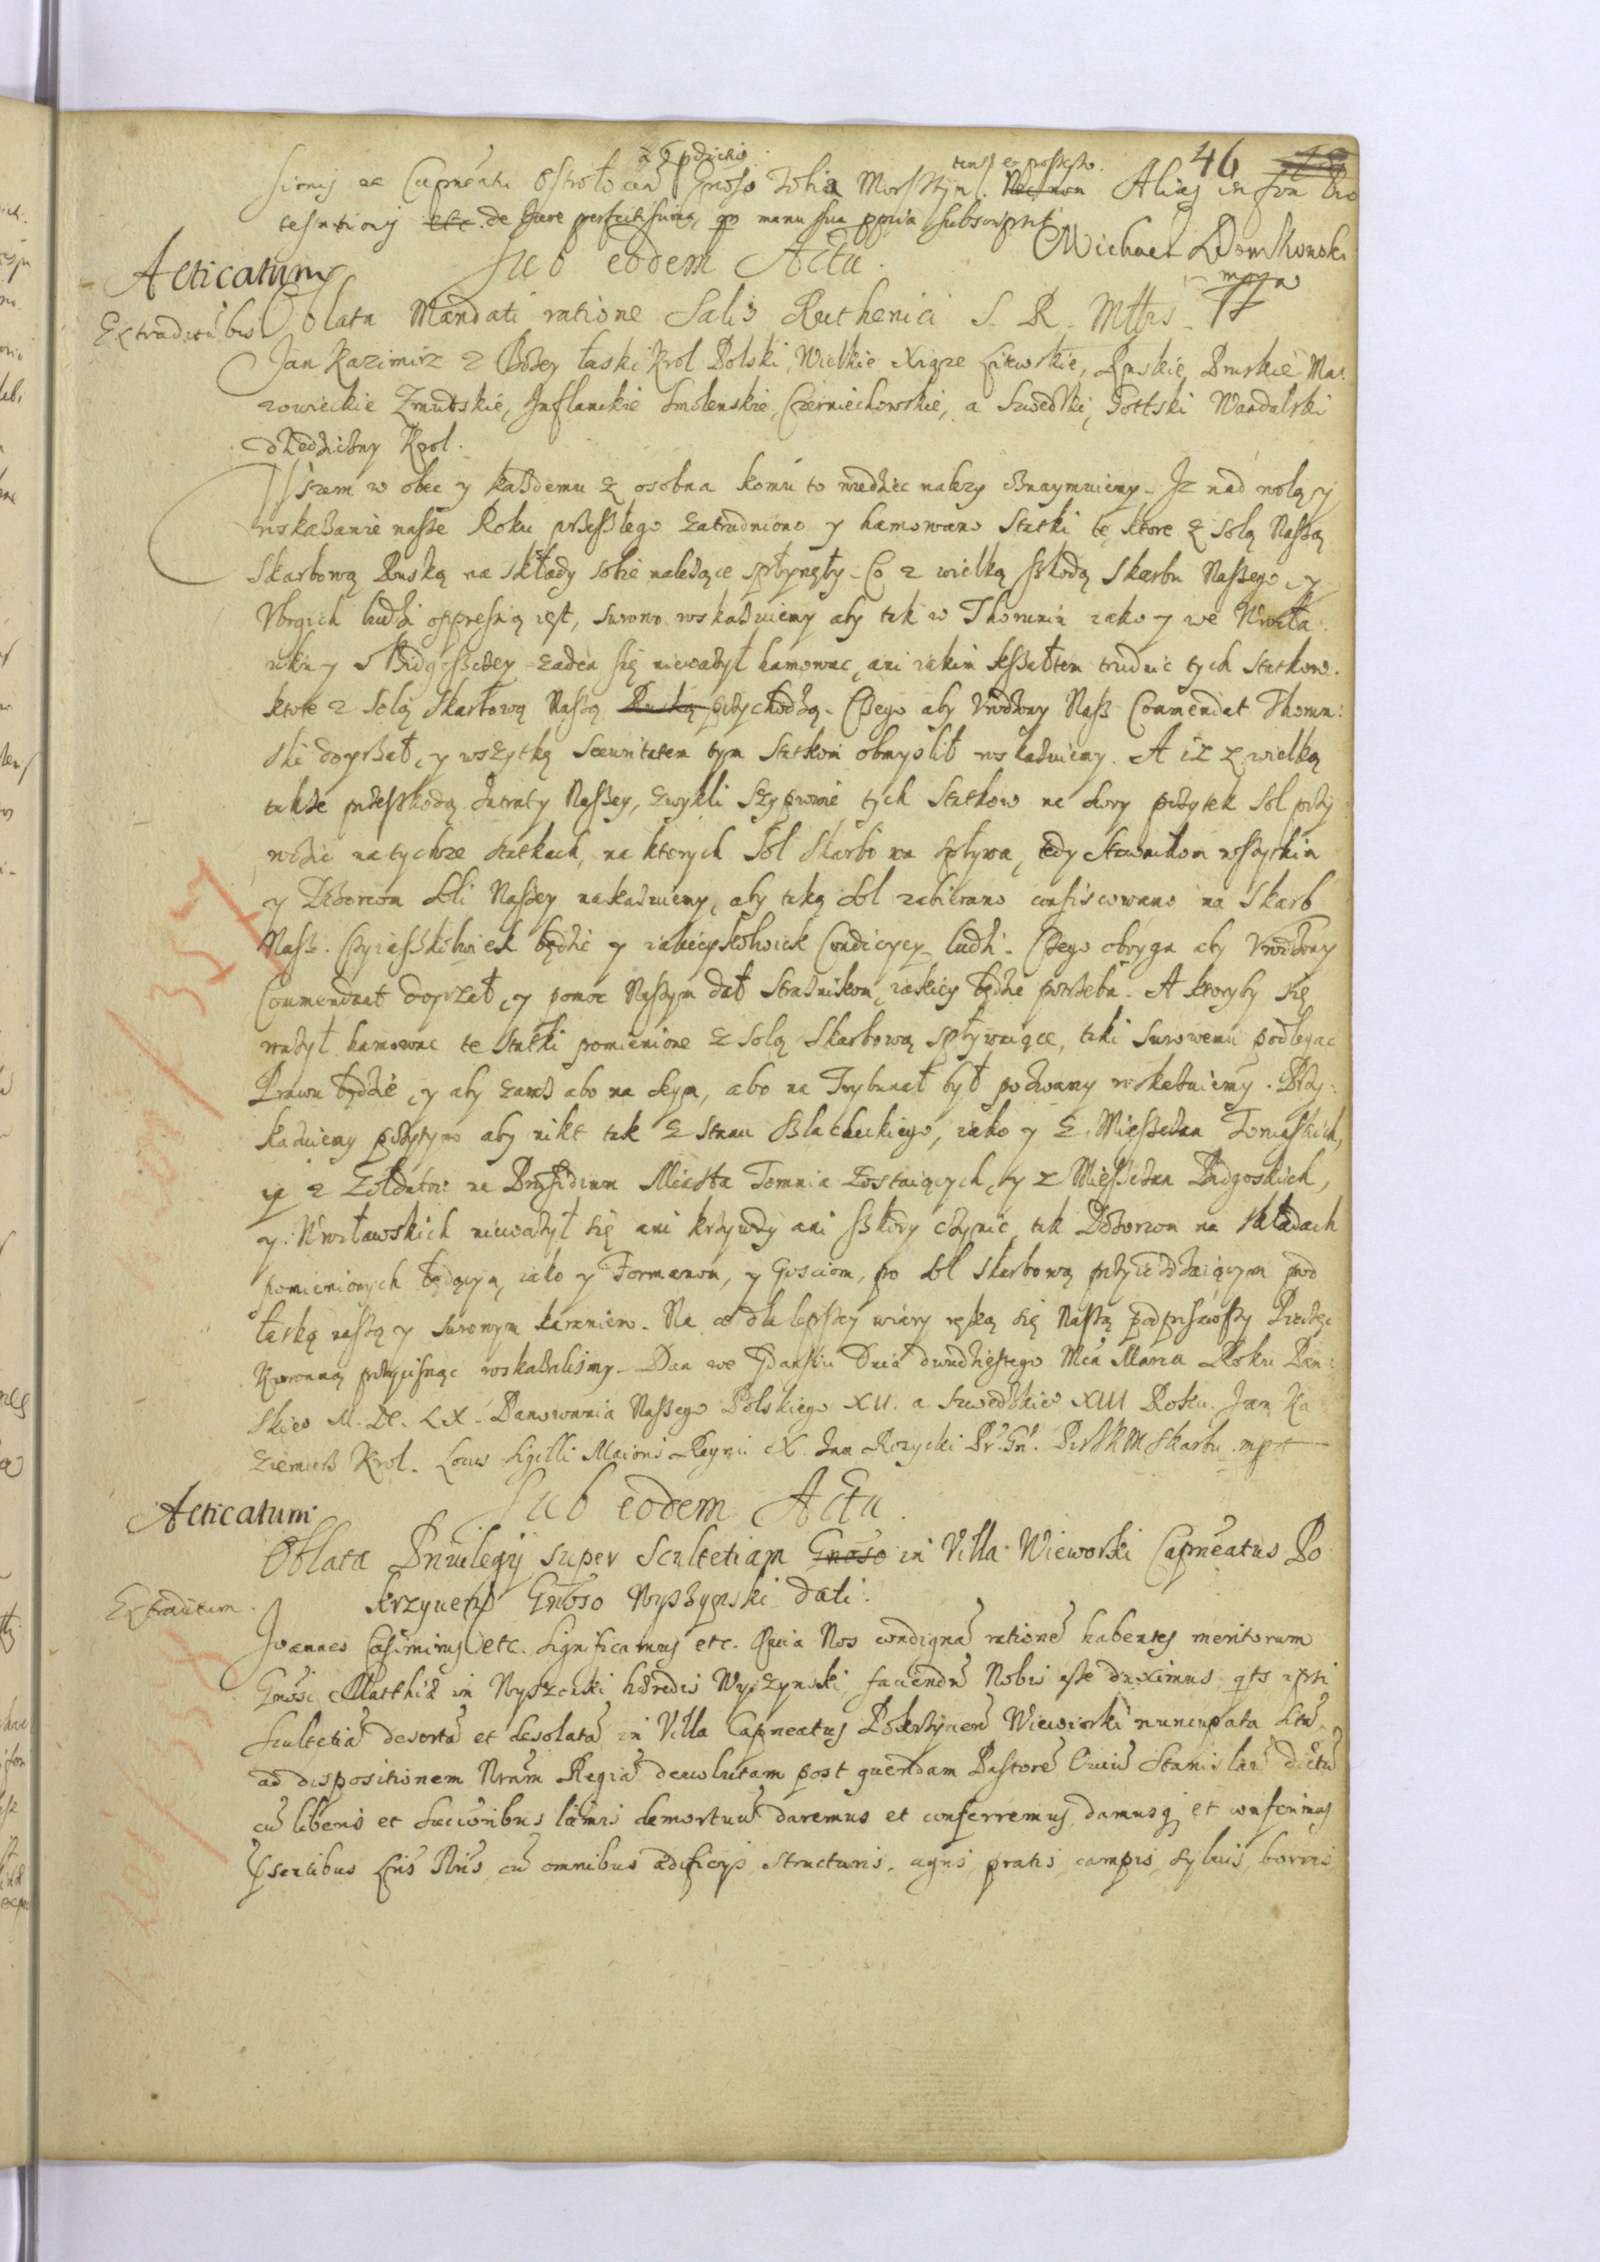 46
sionis ac Capneatu Ostrołecen Gnoso Tobia Morsztyn Alias in
testationis de Jure perfectissima, manu sua ppria subscripsit
Michael Domkowski
mppa
Sub eodem Actu.
Acticatum
Extraditu bis
Oblata Mandati ratione Salis Ruthenici S. R. Mttis
Jan Kazimirz z Bożey łaski Krol Polski, Wielkie Xiąze Litewskie, Ruskie, Pruskie Ma:
zowieckie Zmudskie, Inflanckie Smolenskie, Czerniechowskie, a Szwedzki, Gottski Wandalski
dziedziczny Krol.
Wszem w obec y każdemu z osobna komu to wiedziec nalezy oznaymuiemy. Iz nad wolą y
roskazanie nasze Roku przeszłego zatrudniono y hamowano Statki te ktore z solą Naszą
Skarbową Ruską na składy sobie należące spłynęły. Co z wielką szkodą Skarbu Naszego y
Vbogich ludzi oppresią iest, surowo roskazuiemy aby tak w Thoruniu iako y we Wrocła:
wku y w Bidgoszczey zaden się nieważył hamowac, ani iakim kształtem trudnic tych Statkow.
ktore z Solą Skarbową Naszą Ruską przychodzą. Czego aby Vrodzony Nasz Commendat Thorun:
ski doyrzał, y wszytką Securitatem tym Statkom obmyslił roskazuiemy. A iz z wielką
także przeszkodą Intraty Naszey, zwykli Szyprowie tych Statkow na swoy pożytek Sol przy
wozic na tychze statkach, na ktorych Sol Skarbowa spływa, tedy Strawnikom wszytkim
y Dozorcom Soli Naszey nakazuiemy, aby taką Sol zabierano confiscowano na Skarb
Nasz. Czyiaszkolwiek będzie y iakieyskolwiek Condiciey ludzi. Czego oboyga aby Vrodzony
Commendant doyrzał, y pomoc Naszym dał Strażnikom, iakiey będzie potrzeba. A ktoryby się
ważył hamowac te Statki pomienione z Solą Skarbową spływaiące, taki surowemu podlegac
Prawu będzie, y aby zaraz abo na Seym, abo na Trybunał był pozwany roskazuiemy. Przy:
kazuiemy przytym aby nikt tak z stanu Szlacheckiego, iako y z Mieszczan Toruńskich,
y z Zołdatow na Presidium Miasta Torunia zostaiących, y z Mieszczan Bidgoskich,
y Wrocławskich nieważył się ani krzywdy ani szkody czynic tak Dozorcom na składach
pomienionych będącym, iako y Formanom, y Gosciom, po Sol skarbową przyiezdzaiącym pod
łaską naszą y surowym karaniem. Na co dla lepszey wiary ręką się Naszą podpisawszy Pieczęc
Koronną przycisnąc roskazalismy. Dan we Gdansku Dnia dwudziestego Mca Marca Roku Pan:
skieo M. DC. LX. Panowania Naszego Polskiego XII. a Szwedzkieo XIII Roku. Jan Ka
zimierz Krol. Locus Sigilli Maioris Regni. X. Jan Rozycki
Sub eodem Actu.
Acticatum
Oblata Priuilegij super Scultetiam Gnoso in Villa Wieworski Capneatus Po
Extraditum.
krzyuen Gnoso Wyszynski dati.
Joannes Casimirus etc. Significamus etc. Quia Nos condigna ratione habentes meritorum
Gnosi Matthiæ in Wyszenski hæredis Wyszynski, faciendu Nobis esse duximus qts ipsi
Scultetia deserta et desolata in Villa Capneatus Pokrzywen Wiewiorki nuncupata
ad dispositionem Nram Regia deuolutam post quendam Pastore Ouiu Stanislau dictu
cu liberis et succioribus demortuu daremus et conferremus, damusq et conferimus
psentibus Lris Nris, cu omnibus ædificijs, structuris, agris, pratis, campis, syluis, borris